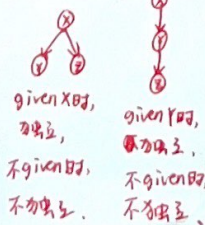 X
Y
Z
given X时,
为独立,
不given时,
不为独立.
X
Y
Z
given Y时,
为独立.
不given时
不为独立.